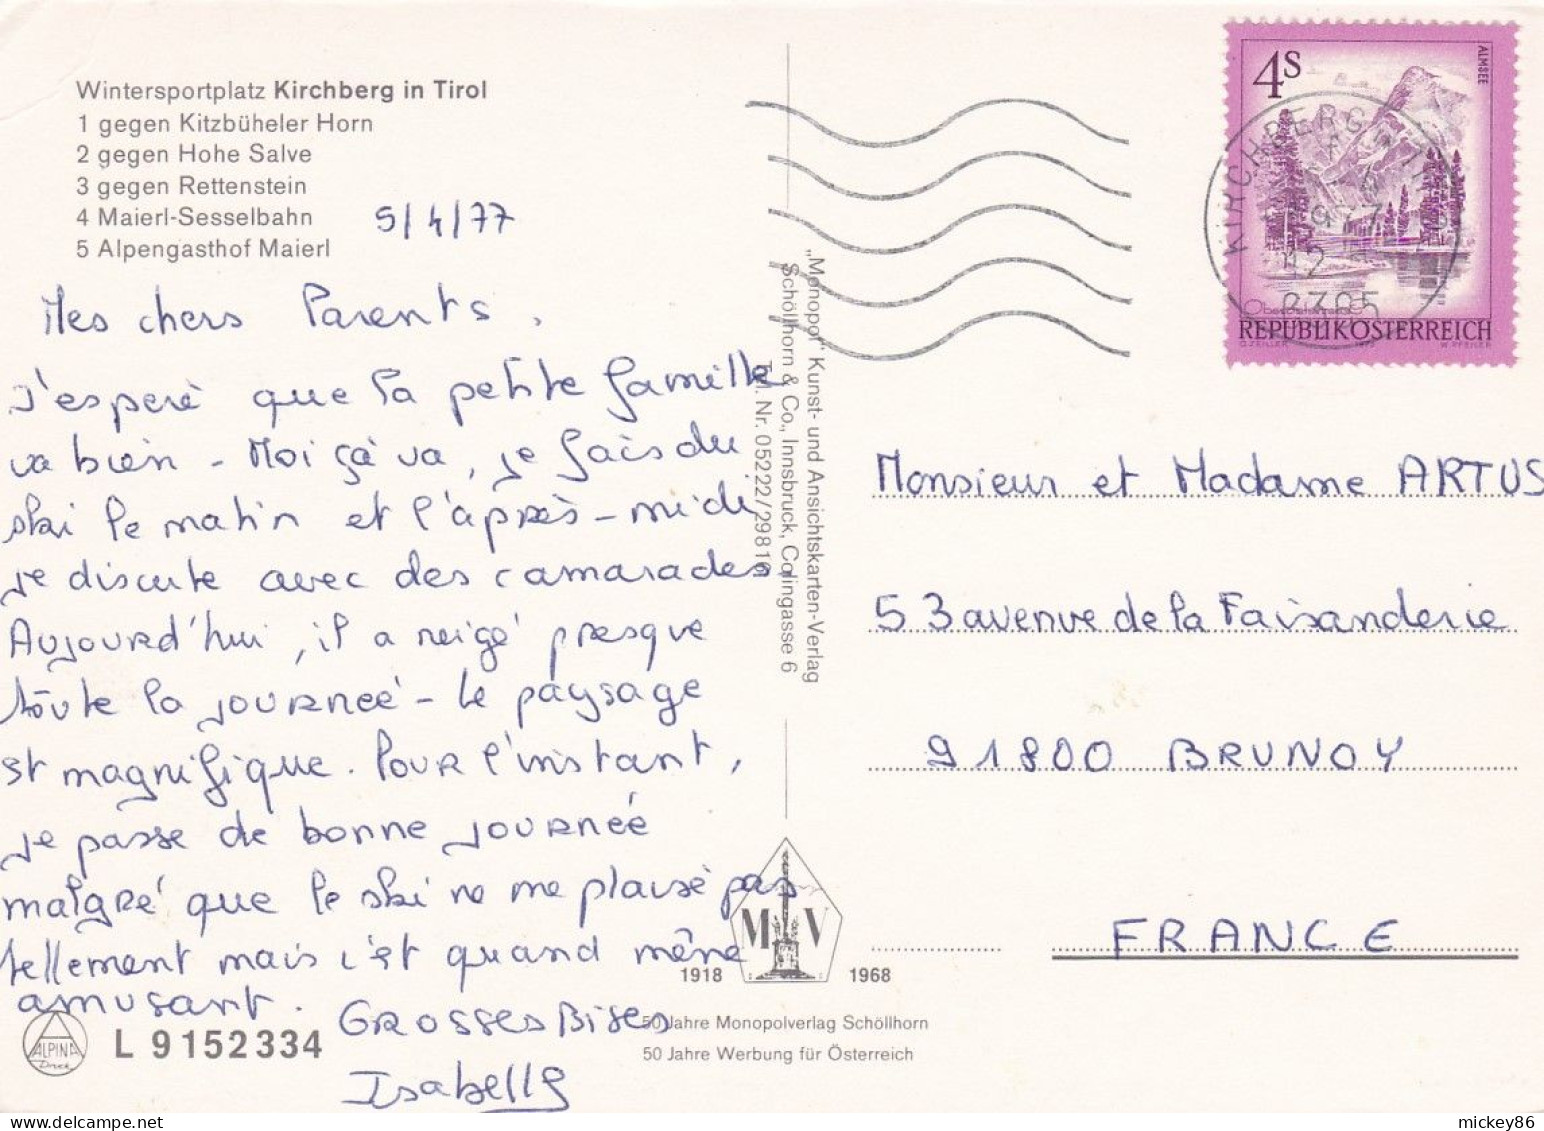 Wintersportplatz Kirchberg in Tirol
1 gegen Kitzbüheler Horn
2 gegen Hohe Salve
3 gegen Rettenstein
4 Maierl-Sesselbahn
5 Alpengasthof Maierl
5/4/77
Mes chers Parents,
J'esperè que la petite famille
va bien - Moi çà va, je fais du
ski le matin et l'après-midi,
je discute avec des camarades.
Aujourd'hui, il a neigé presque
toute la journeé - Le paysage
est magnifique. Pour l'instant,
je passe de bonne journeé
malgré que le ski ne me plaise pas
tellement mais c'est quand même
amusant.
GROSSES BISES
Isabelle
ALPINA
Druck
L 9152334
„Monopol" Kunst- und Ansichtskarten-Verlag
Schöllhorn & Co., Innsbruck, Colingasse 6
Tel. Nr. 05222/2981
M V
1918 1968
50 Jahre Monopolverlag Schöllhorn
50 Jahre Werbung für Österreich
4S
ALMSEE
REPUBLIK ÖSTERREICH
KIRCHBERG
1977
12
Monsieur et Madame ARTUS
53 avenue de la Faisanderie
91800 BRUNOY
FRANCE
mickey86